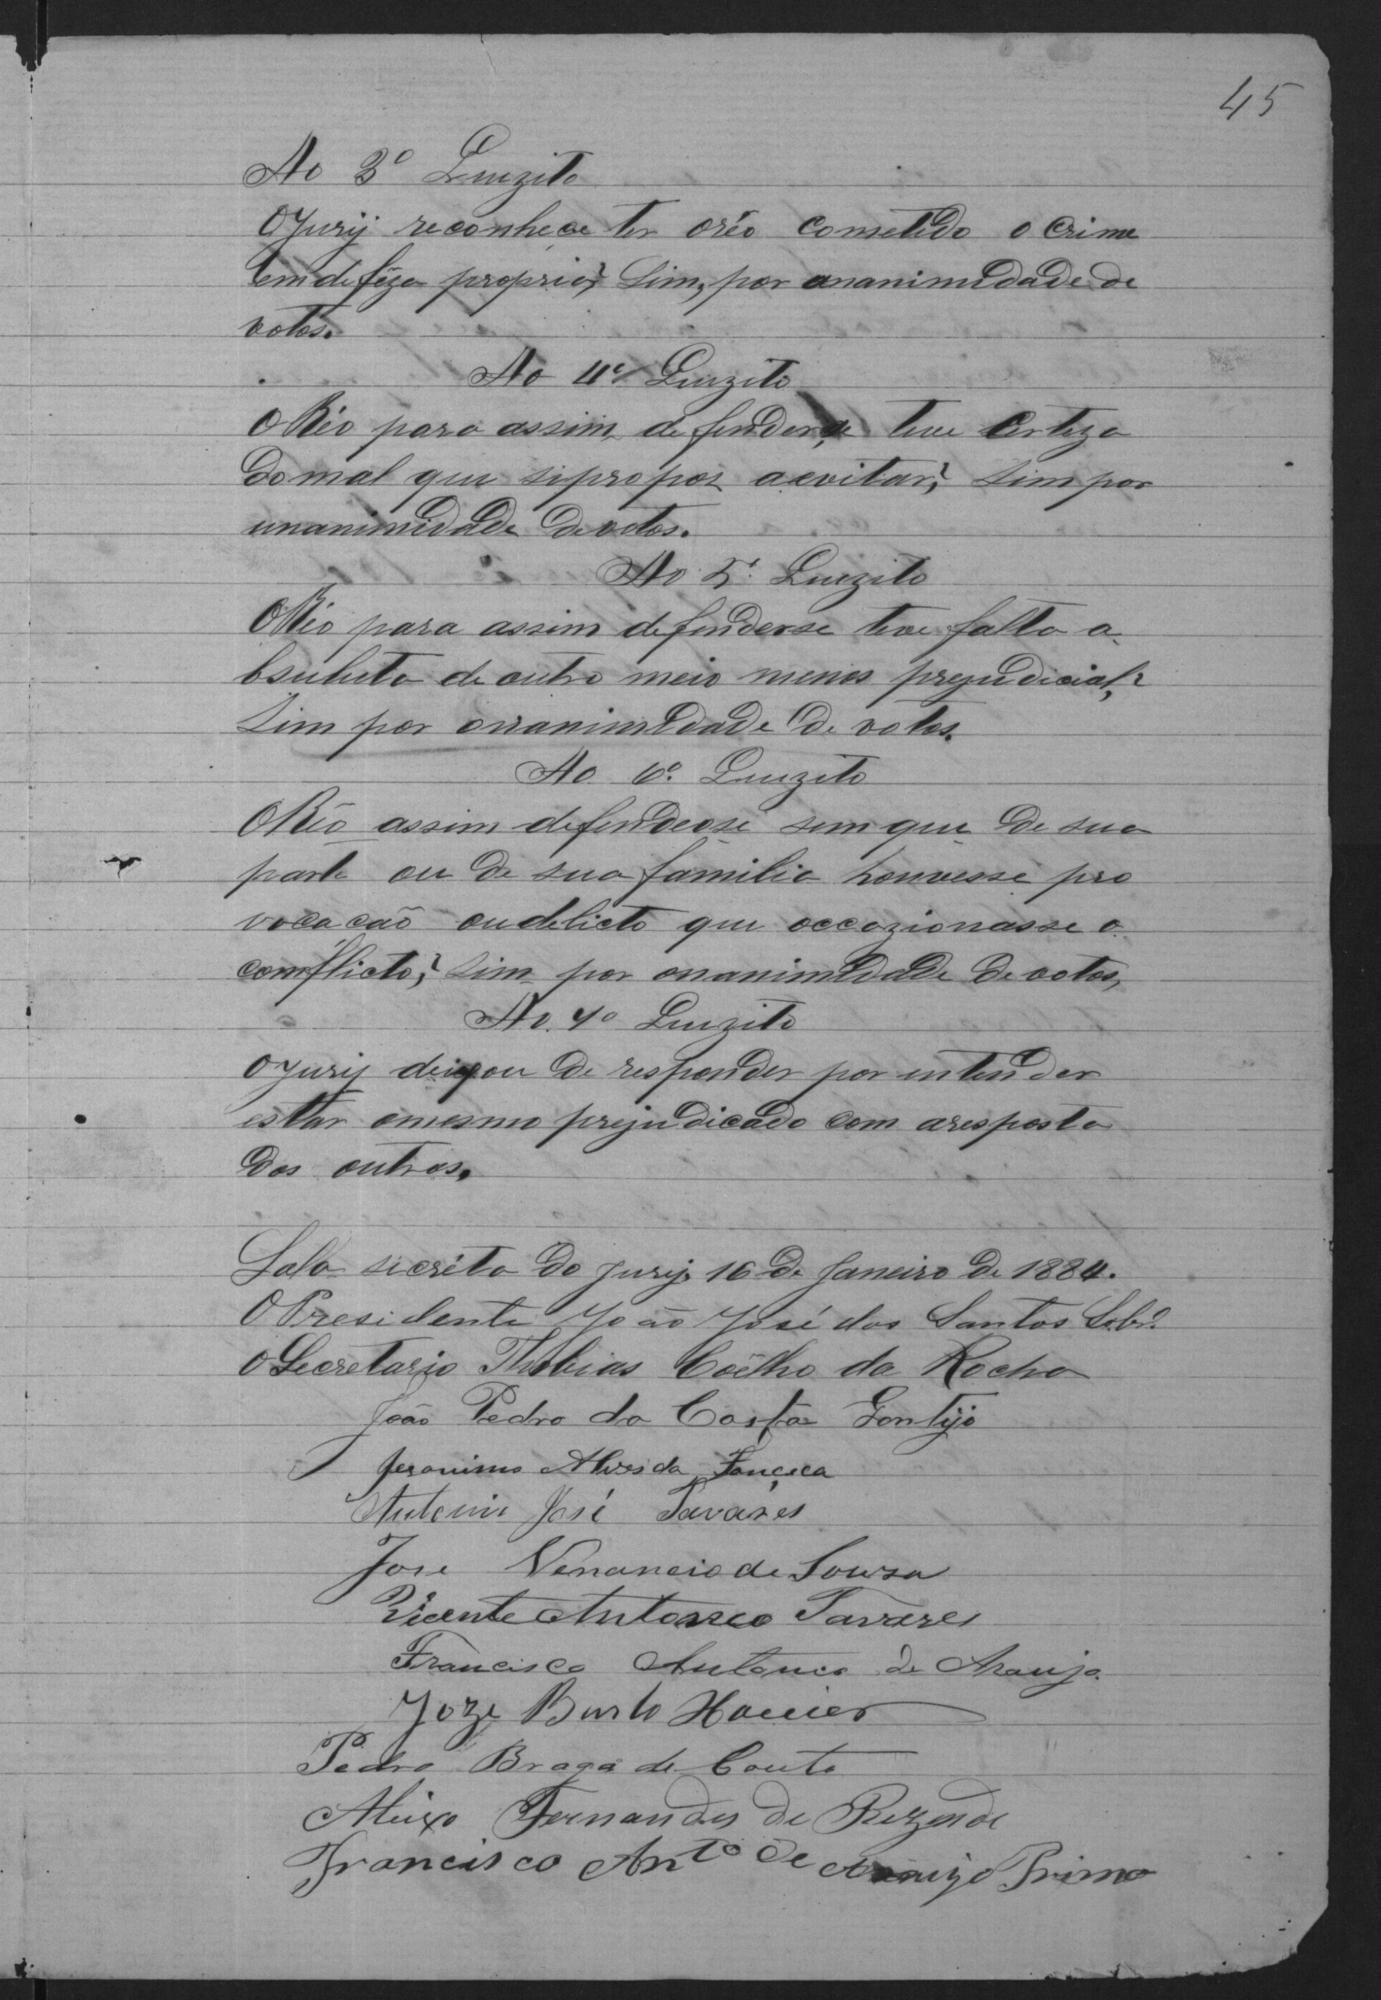 45
Ao 3º Quezito
O Jury reconhece ter oréo cometido o crime
em defeza propria? Sim, por unanimidade de
votos.
Ao 4º Quezito
O Réo para assim defenderse teve certeza
do mal que sipropos aevitar? Sim por
unanimidade devotos.
Ao 5º Quezito
O Réo para assim defenderse teve falta a
bsuluta de outro meio menos prejudicial?
Sim por unanimidade de votos.
Ao 6º Quezito
O Réo assim defendeose sem que de sua
parte ou de sua familia houvesse pro
vocacão oudelicto que occazionasse o
comflicto? Sim por unanimidade de votos,
Ao 7º Quezito
O Jury deixou de responder por intender
estar omesmo prejudicado com aresposta
dos outros.
Sala secréta do Jury 16 de Janeiro de 1884.
O Presidente João José dos Santos Sobrº
O Secretario Thobias Coêlho da Rocha
João Pedro da Costa Gontijo
Jeronimo Alves da Fonceca
Antonio José Tavares
Jose Venancio de Sousa
Vicente Antonio Tavares
Francisco Antonio de Araujo
Joze
Pedro Braga de Couto
Aleixo Fernandes de Rezende
Francisco Antº de Araujo Primo